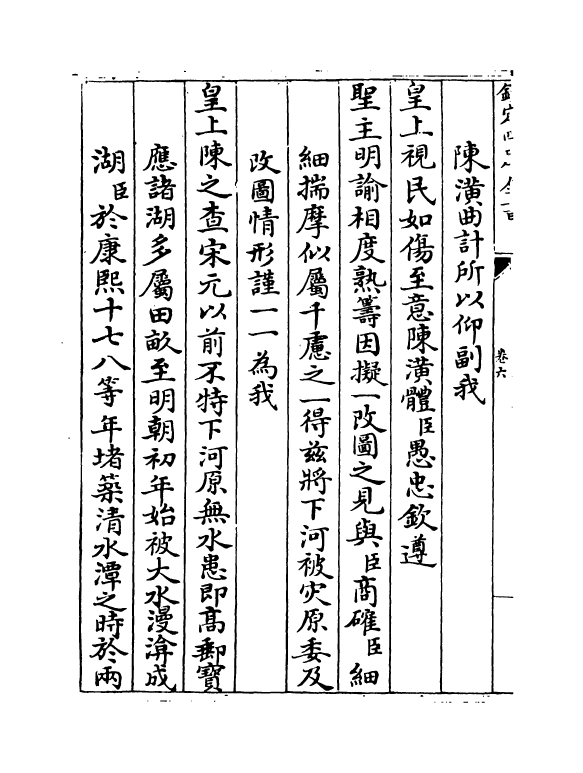 卷六
陳潢曲計所以仰副我
皇上視民如傷至意陳潢體臣愚忠欽遵
聖主明諭相度熟籌因擬一改圖之見與臣商確臣細
細揣摩似屬千慮之一得兹將下河被灾原委及
改圖情形謹一一為我
皇上陳之查宋元以前不特下河原無水患即髙郵寶
應諸湖多屬田畝至明朝初年始被大水漫渰成
湖臣於康熙十七八等年堵築清水潭之時於兩